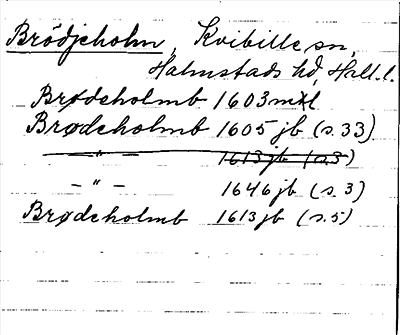 Brödjeholm, Kvibille sn,
Halmstads hd, Hall. l.
Brødeholmb 1603 mtl
Brødeholmb 1605 jb (s. 33)
— " — 1613 jb (s. 3)
— " — 1646 jb (s. 3)
Brødeholmb 1613 jb (s. 5)